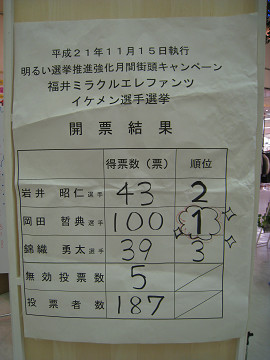 平成21年11月15日執行
明るい選挙推進強化月間街頭キャンペーン
福井ミラクルエレファンツ
イケメン選手選挙
開票結果
得票数(票) 順位
岩井 昭仁 選手 43 2
岡田 哲典 選手 100 1
錦織 勇太 選手 39 3
無効投票数 5
投票者数 187